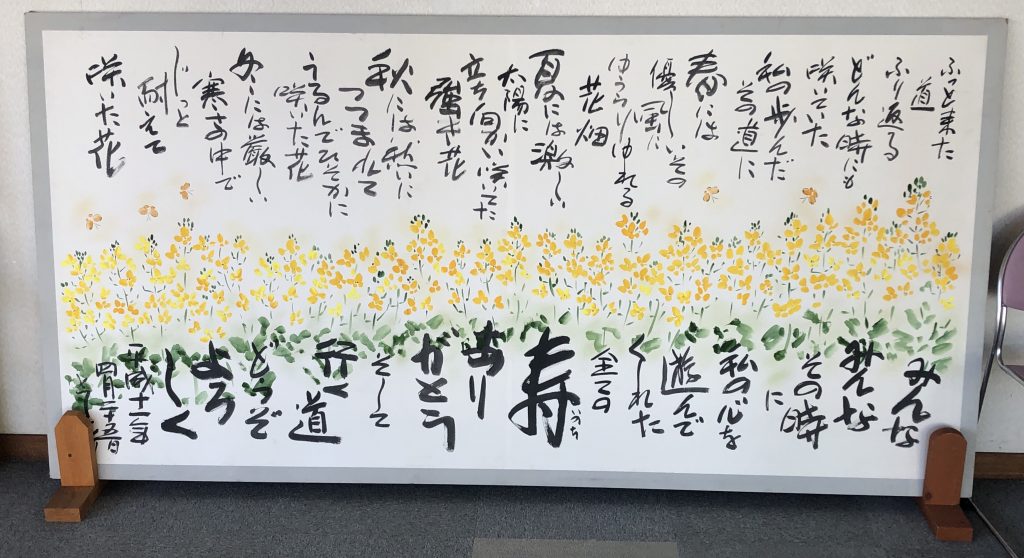 ふと来た
道
ふり返る
どんな時にも
咲いていた
私の歩んだ
その道に
春には
優しいその
風に
ゆらりゆれる
花畑
夏には激しい
太陽に
立ち向い咲いてた
強き花
秋には愁いに
つつまれて
うるんでひそかに
咲いた花
冬には厳しい
寒さの中で
じっと
耐えて
咲いた花
みんな
みんな
その時
に
私の心を
遊んで
くれた
全ての
寿
いのち
あり
がとう
そして
行く
道
どうぞ
よろ
しく
平成十一年